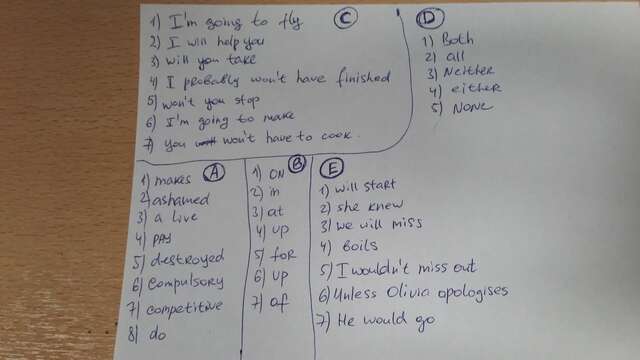 C
1) I'm going to fly
2) I will help you
3) will you take
4) I probably won't have finished
5) won't you stop
6) I'm going to make
7) you won't have to cook.
D
1) Both
2) all
3) Neither
4) either
5) None
A
1) makes
2) ashamed
3) a live
4) pay
5) destroyed
6) compulsory
7) competitive
8) do
B
1) ON
2) in
3) at
4) up
5) for
6) up
7) of
E
1) will start
2) she knew
3) we will miss
4) boils
5) I wouldn't miss out
6) Unless Olivia apologises
7) He would go